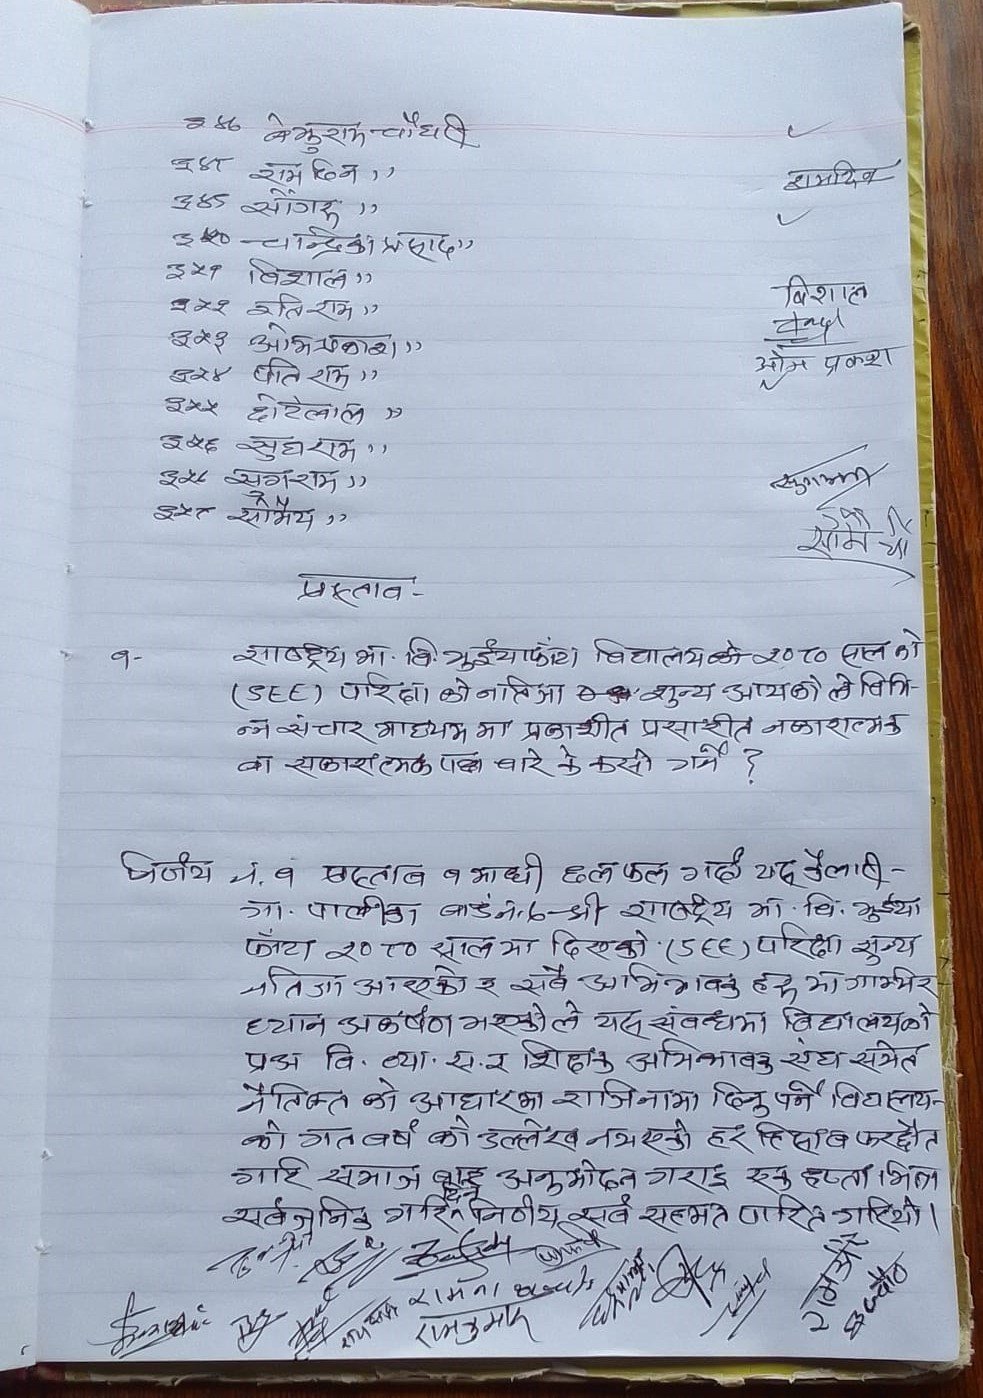 ३४७ बेझुराम चौधरी
३४८ राम दिन ,,
रामदिन
३४९ सोंगरु ,,
३५० चन्द्रिका प्रसाद ,,
३५१ बिशाल ,,
बिशाल
३५२ इति राम ,,
३५३ ओम प्रकाश ,,
ओम प्रकाश
३५४ पति राम ,,
३५५ छोटेलाल ,,
३५६ सुघ राम ,,
३५८ सग राम ,,
३५९ सोमैय ,,
प्रस्ताव -
१- राष्ट्रिय मा. बि. भुईयाफाँटा विद्यालयको २०८० साल को
(SEE) परिक्षा को नतिजा शुन्य आयको ले बिभि-
न्न संचार माध्यम मा प्रकाशीत प्रसाशीत नकारात्मक
वा सकारात्मक पक्ष बारे के कसो गर्ने ?
निर्णय नं. १ प्रस्ताव १ माथी छलफल गर्दा यस कैलारी-
गा. पालीका वार्ड नं. ७ श्री राष्ट्रिय मा. बि. भुईया
फाँटा २०८० सालमा दिएको (SEE) परिक्षा सुन्य
नतिजा आएको र सबै अभिभावक हरु मा गाम्भिर
ध्यान अकर्षण भएकोले यस संबन्धमा विद्यालयको
प्रअ वि. व्या. स. र शिक्षक अभिभावक संघ समेत
नैतिकत को आधारमा राजिनामा दिनु पर्ने विद्यालय-
को गत बर्ष को उल्लेख नभएको हर हिसाब फरछौत
गरि समाज बाट अनुमोदन गराइ एक हप्ता भित्र
सर्वजनिक गरि दिने निर्णय सर्व सहमत पारित गरियो।
रामकुमार